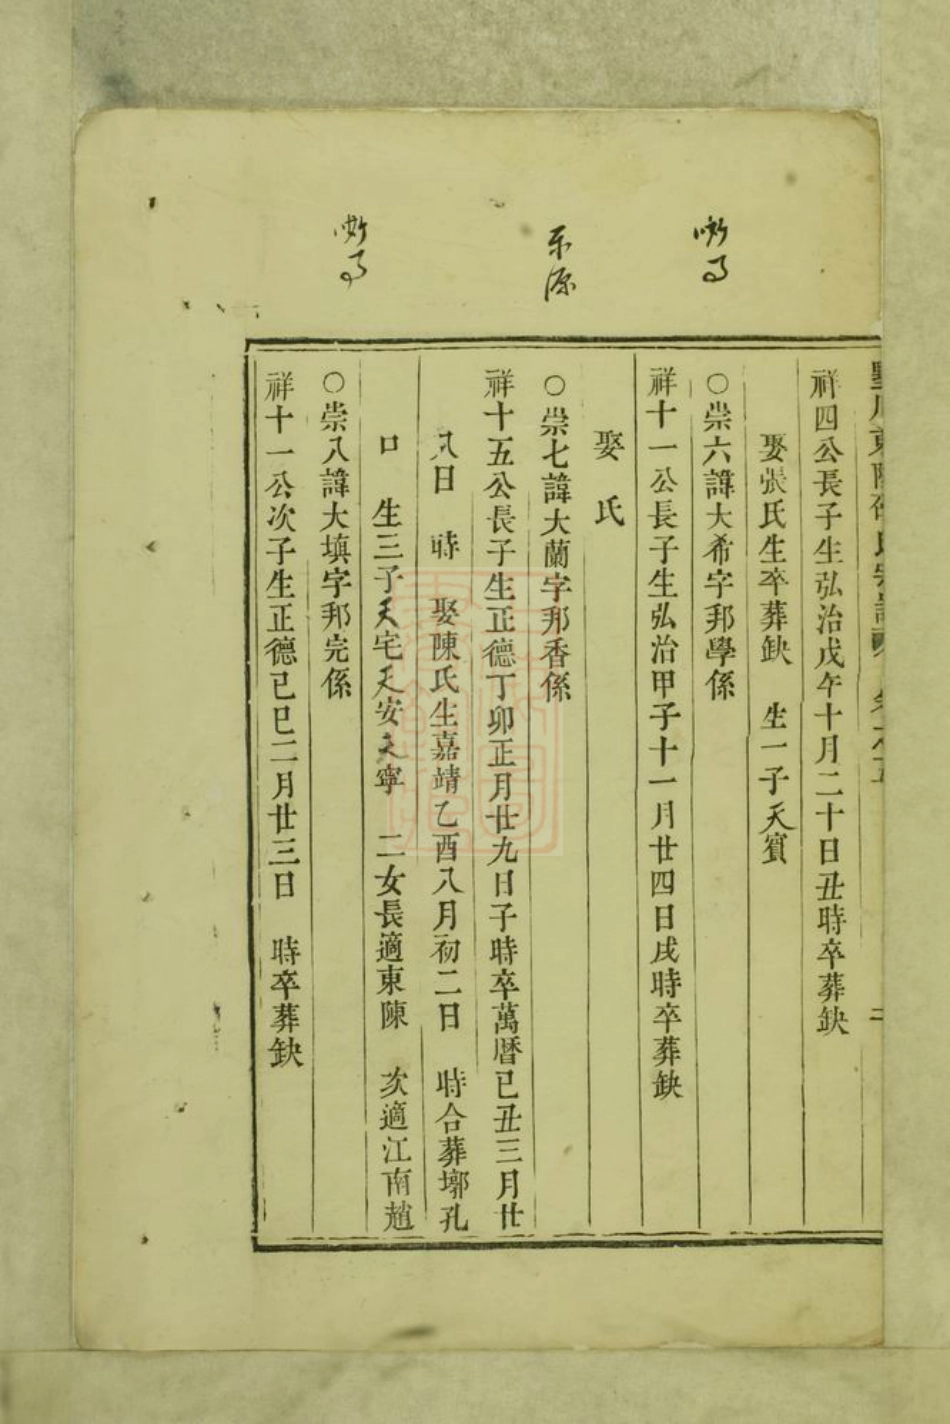 祥四公長子生弘治戊午十月二十日丑時卒葬缺
娶張氏生卒葬缺　生一子天賓
○崇六諱大希字邦學係
祥十一公長子生弘治甲子十一月廿四日戌時卒葬缺
娶　氏
○崇七諱大蘭字邦香係
祥十五公長子生正德丁卯正月廿九日子時卒萬曆已丑三月廿
八日　時　娶陳氏生嘉靖乙酉八月初二日　時合葬墎孔
口　生三子天宅天安天寧　二女長適東陳　次適江南趙
○崇八諱大填字邦完係
祥十一公次子生正德已巳二月廿三日　時卒葬缺